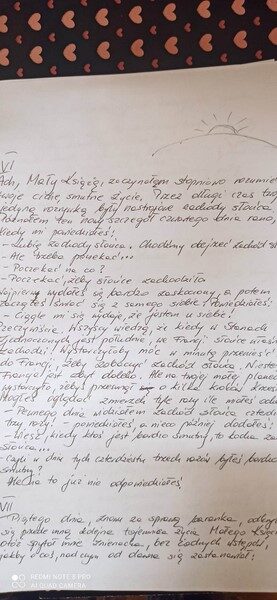 VI
Ach, Mały Książę, zaczynałem stopniowo rozumieć
twoje ciche smutne życie. Przez długi czas twoją
jedyną rozrywką były nastrojowe zachody słońca
Poznałem ten nowy szczegół czwartego dnia rano,
kiedy mi powiedziałeś:
- Lubię zachody słońca. Chodźmy obejrzeć zachód sł
- Ale trzeba poczekać...
- Poczekać na co?
- Poczekać, żeby słońce zachodziło
Najpierw wydałeś się bardzo zaskoczony, a potem
zacząłeś śmiać się z samego siebie! Powiedziałeś:
- Ciągle mi się wydaje, że jestem u siebie!
Rzeczywiście. Wszyscy wiedzą, że kiedy w Stanach
Zjednoczonych jest południe, we Francji słońce właśnie
zachodzi! Wystarczyłoby móc w minutę przenieść
do Francji, żeby zobaczyć zachód słońca. Niestety
Francja jest zbyt daleko. Ale na twojej małej planecie
wystarczyło, żebyś przesunął o kilka kroków krzes
Mogłeś oglądać zmierzch tyle razy ile miałeś och
- Pewnego dnia widziałem zachód słońca czterdzi
trzy razy! - powiedziałeś, a nieco później dodałeś:
- Wiesz, kiedy ktoś jest bardzo smutny, to kocha zach
słońca...
- Czyli w dniu tych czterdziestu trzech razów byłeś bardzo
smutny?
Ale na to już nie odpowiedziałeś
VII
Piątego dnia, znowu za sprawą baranka, odkryła
się przede mną kolejna tajemnica życia Małego Księcia
otóż spytał mnie znienacka, bez żadnych wstępów,
jakby o coś, nad czym od dawna się zastanawiał:
REDMI NOTE 8 PRO
AI QUAD CAMERA